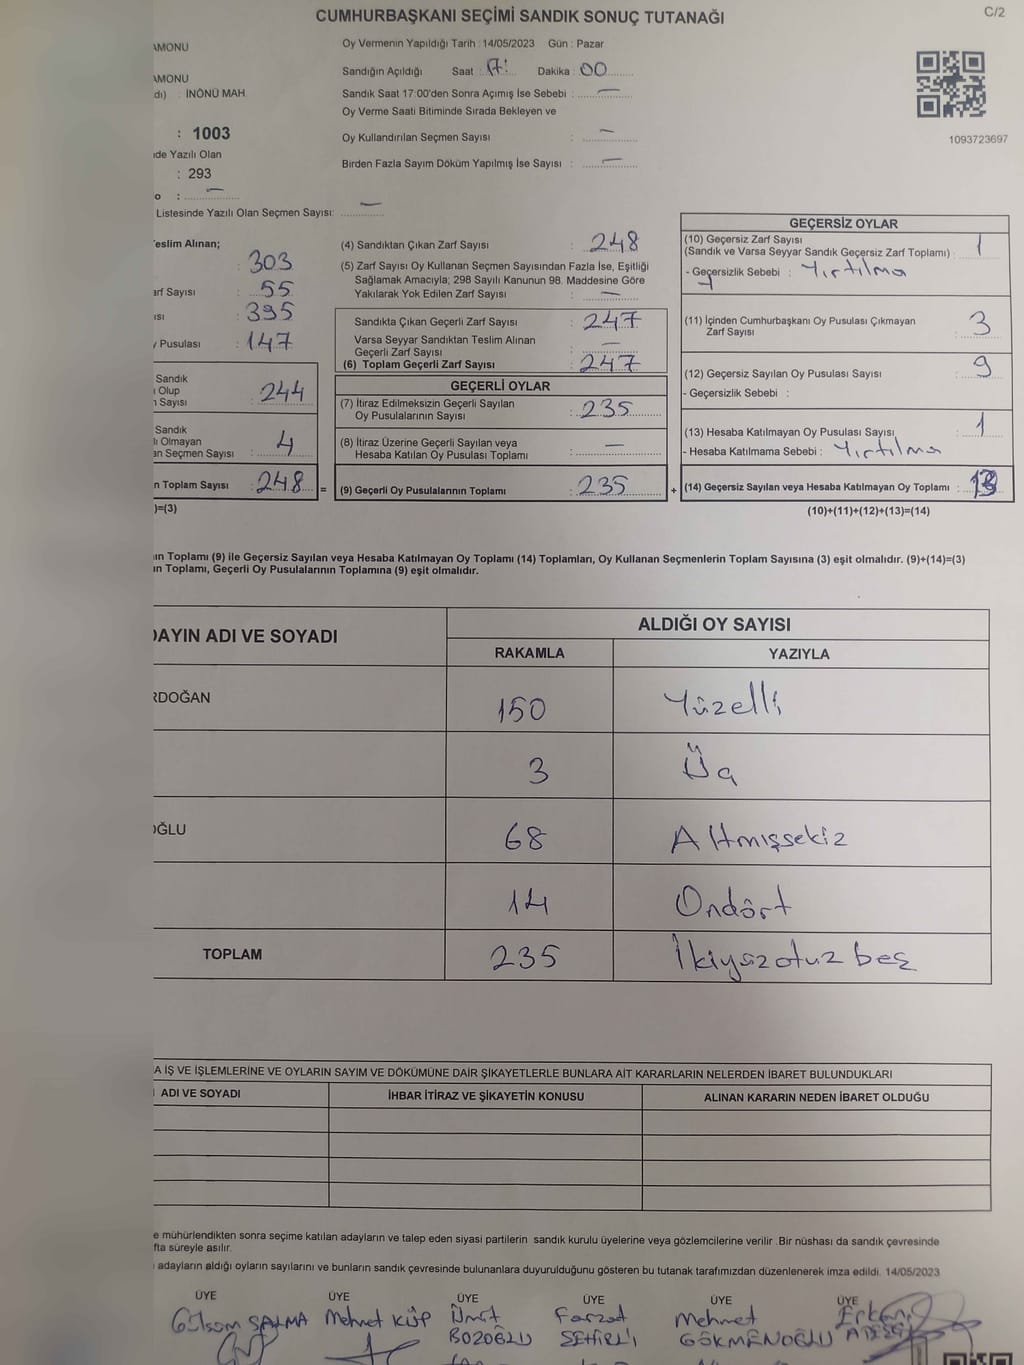 CUMHURBAŞKANI SEÇİMİ SANDIK SONUÇ TUTANAĞI
C/2
AMONU
Oy Vermenin Yapıldığı Tarih : 14/05/2023 Gün : Pazar
Sandığın Açıldığı Saat : 17: Dakika : 00
AMONU
dı) : İNÖNÜ MAH.
Sandık Saat 17:00'den Sonra Açımış İse Sebebi : —
Oy Verme Saati Bitiminde Sırada Bekleyen ve
Oy Kullandırılan Seçmen Sayısı : —
: 1003
1093723697
Birden Fazla Sayım Döküm Yapılmış İse Sayısı : —
de Yazılı Olan
: 293
o : —
Listesinde Yazılı Olan Seçmen Sayısı: —
Teslim Alınan;
: 303
arf Sayısı : 55
ısı : 395
y Pusulası : 147
Sandık
ı Olup
n Sayısı : 244
Sandık
lı Olmayan
an Seçmen Sayısı : 4
n Toplam Sayısı : 248 =
)=(3)
(4) Sandıktan Çıkan Zarf Sayısı : 248
(5) Zarf Sayısı Oy Kullanan Seçmen Sayısından Fazla İse, Eşitliği
Sağlamak Amacıyla; 298 Sayılı Kanunun 98. Maddesine Göre
Yakılarak Yok Edilen Zarf Sayısı : —
Sandıkta Çıkan Geçerli Zarf Sayısı : 247
Varsa Seyyar Sandıktan Teslim Alınan
Geçerli Zarf Sayısı : —
(6) Toplam Geçerli Zarf Sayısı : 247
GEÇERLİ OYLAR
(7) İtiraz Edilmeksizin Geçerli Sayılan
Oy Pusulalarının Sayısı : 235
(8) İtiraz Üzerine Geçerli Sayılan veya
Hesaba Katılan Oy Pusulası Toplamı : —
(9) Geçerli Oy Pusulalarının Toplamı : 235 +
GEÇERSİZ OYLAR
(10) Geçersiz Zarf Sayısı
(Sandık ve Varsa Seyyar Sandık Geçersiz Zarf Toplamı) : 1
- Geçersizlik Sebebi : Yırtılma
(11) İçinden Cumhurbaşkanı Oy Pusulası Çıkmayan
Zarf Sayısı : 3
(12) Geçersiz Sayılan Oy Pusulası Sayısı : 9
- Geçersizlik Sebebi :
(13) Hesaba Katılmayan Oy Pusulası Sayısı : 1
- Hesaba Katılmama Sebebi : Yırtılma
(14) Geçersiz Sayılan veya Hesaba Katılmayan Oy Toplamı :
(10)+(11)+(12)+(13)=(14)
ın Toplamı (9) ile Geçersiz Sayılan veya Hesaba Katılmayan Oy Toplamı (14) Toplamları, Oy Kullanan Seçmenlerin Toplam Sayısına (3) eşit olmalıdır. (9)+(14)=(3)
ın Toplamı, Geçerli Oy Pusulalarının Toplamına (9) eşit olmalıdır.
DAYIN ADI VE SOYADI
ALDIĞI OY SAYISI
RAKAMLA YAZIYLA
RDOĞAN 150 Yüzelli
3 Üç
OĞLU 68 Altmışsekiz
14 Ondört
TOPLAM 235 İkiyüzotuz beş
A İŞ VE İŞLEMLERİNE VE OYLARIN SAYIM VE DÖKÜMÜNE DAİR ŞİKAYETLERLE BUNLARA AİT KARARLARIN NELERDEN İBARET BULUNDUKLARI
ADI VE SOYADI İHBAR İTİRAZ VE ŞİKAYETİN KONUSU ALINAN KARARIN NEDEN İBARET OLDUĞU
e mühürlendikten sonra seçime katılan adayların ve talep eden siyasi partilerin sandık kurulu üyelerine veya gözlemcilerine verilir .Bir nüshası da sandık çevresinde
fta süreyle asılır.
adayların aldığı oyların sayılarını ve bunların sandık çevresinde bulunanlara duyurulduğunu gösteren bu tutanak tarafımızdan düzenlenerek imza edildi. 14/05/2023
ÜYE ÜYE ÜYE ÜYE ÜYE ÜYE
Gülsom SALMA Mehmet KÜP Ümit Mehmet Erkan
BOZOĞLU SEHİRLİ GÖKMENOĞLU